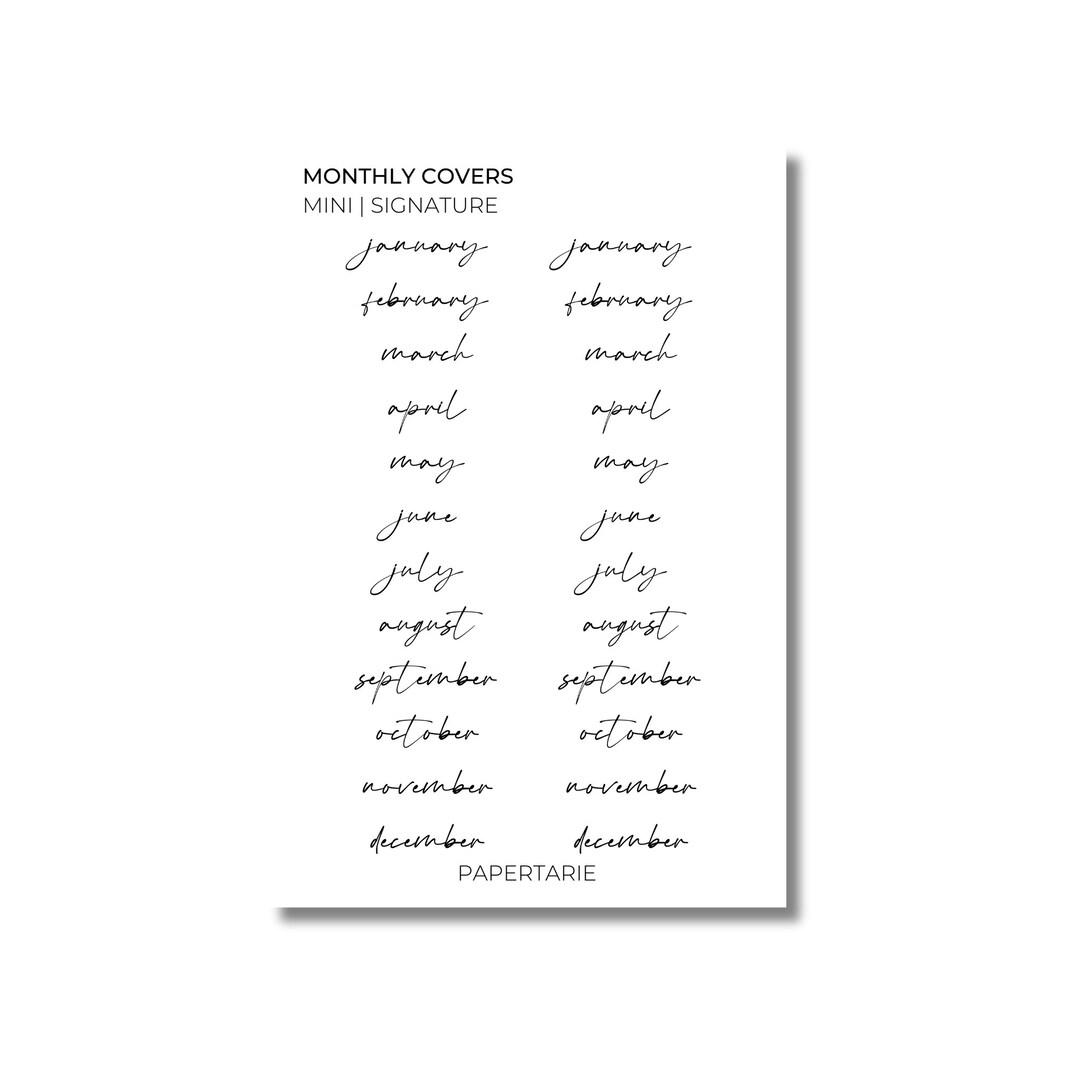 MONTHLY COVERS
MINI | SIGNATURE
january january
february february
march march
april april
may may
june june
july july
august august
september september
october october
november november
december december
PAPERTARIE